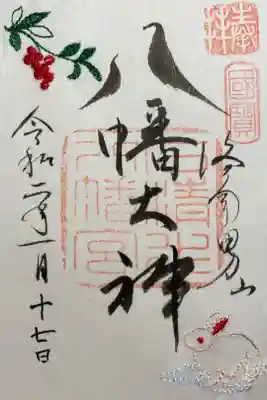 奉拝
國寶
洛南男山
八幡大神
石清水
八幡宮
令和二年一月十七日